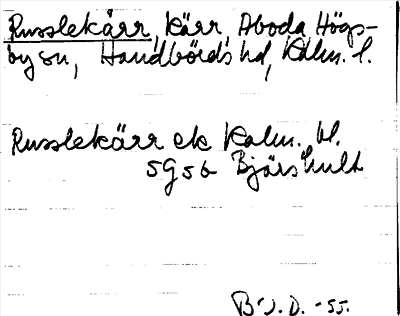 Russlekärr, kärr, Aboda, Högs-
by sn, Handbörds hd, Kalm. l.
Russlekärr ek Kalm. bl.
5G5b Bjärshult
B-J.D. -55.